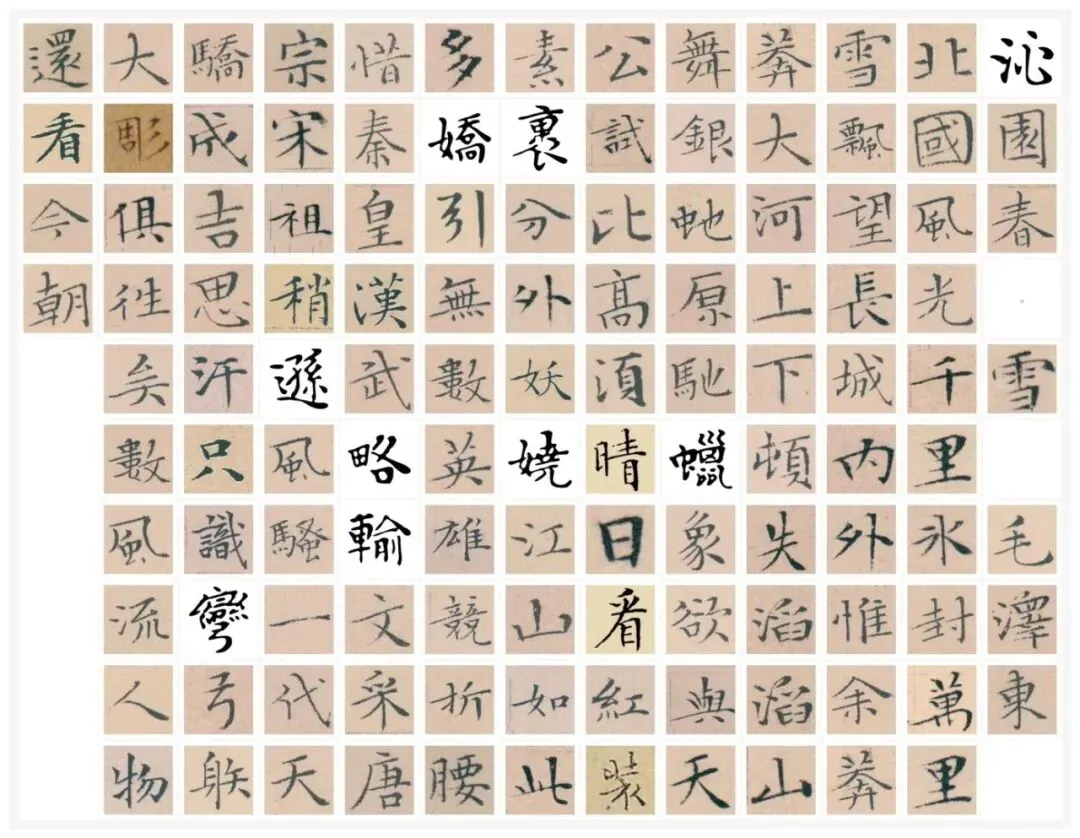 沁園春·雪 毛澤東
北國風光千里氷封萬里
雪飄望長城內外惟余莽
莽大河上下頓失滔滔山
舞銀虵原馳蠟象欲與天
公試比高須晴日看紅裝
素裹分外妖嬈江山如此
多嬌引無數英雄競折腰
惜秦皇漢武略輸文采唐
宗宋祖稍遜風騷一代天
驕成吉思汗只識彎弓䠶
大彫俱往矣數風流人物
還看今朝